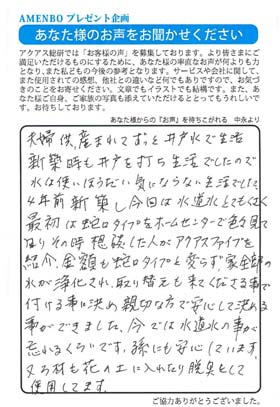 AMENBO プレゼント企画
あなた様のお声をお聞かせください
アクアス総研では「お客様の声」を募集しております。より皆さまにご
満足いただけるものにするために、あなた様の率直なお声が何よりも力
となり、また私どもの今後の参考となります。サービスや会社に関して、
また使用されての感想、他社との違いなど何でもありですので、お気づ
きのことをお寄せください。文章でもイラストでも結構です。また、あ
なた様ご自身、ご家族の写真も添えていただけるととってもうれしいで
す。お待ちしております。
あなた様からの『お声』を待ちこがれる 中永より
夫婦供、産まれてずっと井戸水で生活
新築時も井戸を打ち生活でしたので
水は使いほうだい気にならない生活でした。
4年前新築し今回は水道水としてもらく
最初は蛇口タイプをホームセンターで色々見て
おりその時想談した人がアクアスファイブを
紹介、金額も蛇口タイプと変らず家全部の
水が浄化され、取り替えも来てくださる事で
付ける事に決め親切な方で安心して決める
事ができました。今では水道水の事が
忘れるくらいです。孫にも安心しています。
又ろ材も花の土に入れたり脱臭として
使用してます。
ご協力ありがとうございました。